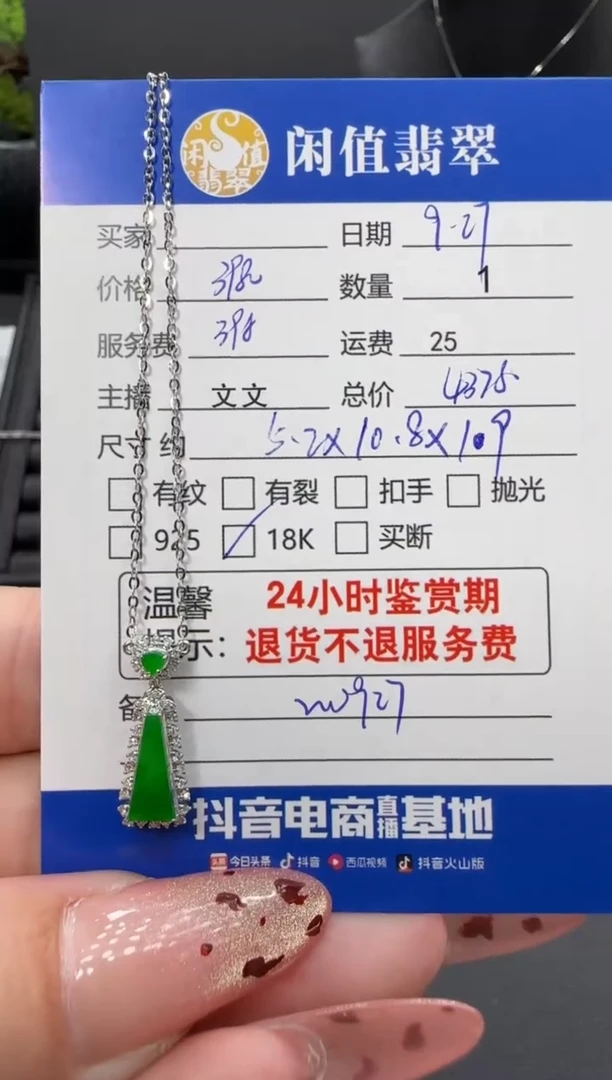 闲值
翡翠
闲值翡翠
买家 日期 9-27
价格 数量 1
服务费 395 运费 25
主播 文文 总价 4375
尺寸 约 5.2x10.8x1.9
有纹 有裂 扣手 抛光
925 18K 买断
温馨 24小时鉴赏期
提示: 退货不退服务费
备
抖音电商直播基地
头条 今日头条 抖音 西瓜视频 抖音火山版